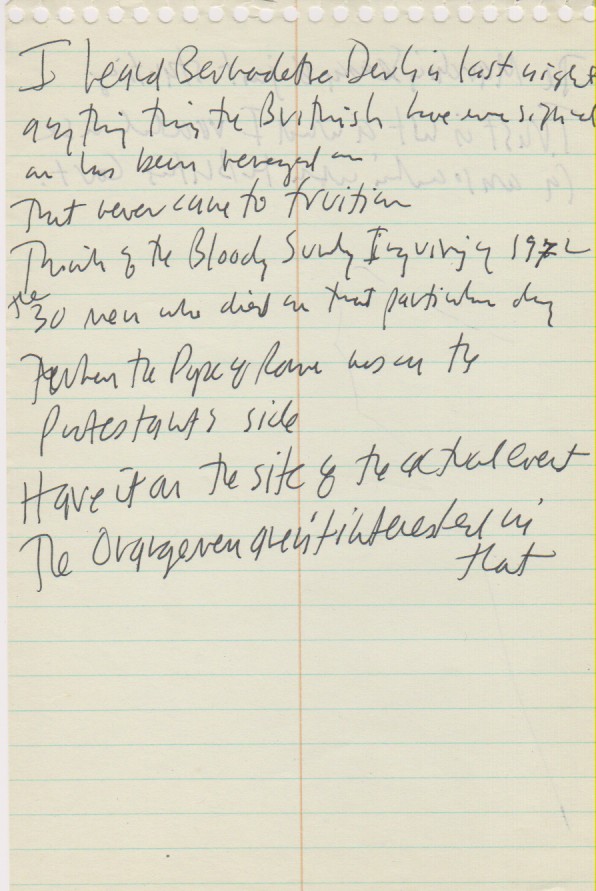 I heard Bernadette Devlin last night
anything the British have ever signed
on has been reneged on
That never came to fruition
Think of the Bloody Sunday Inquiry 1972
the 30 men who died on that particular day
when the Pope of Rome was on the
Protestants side
Have it on the site of the actual event
The Orangemen aren't interested in
that